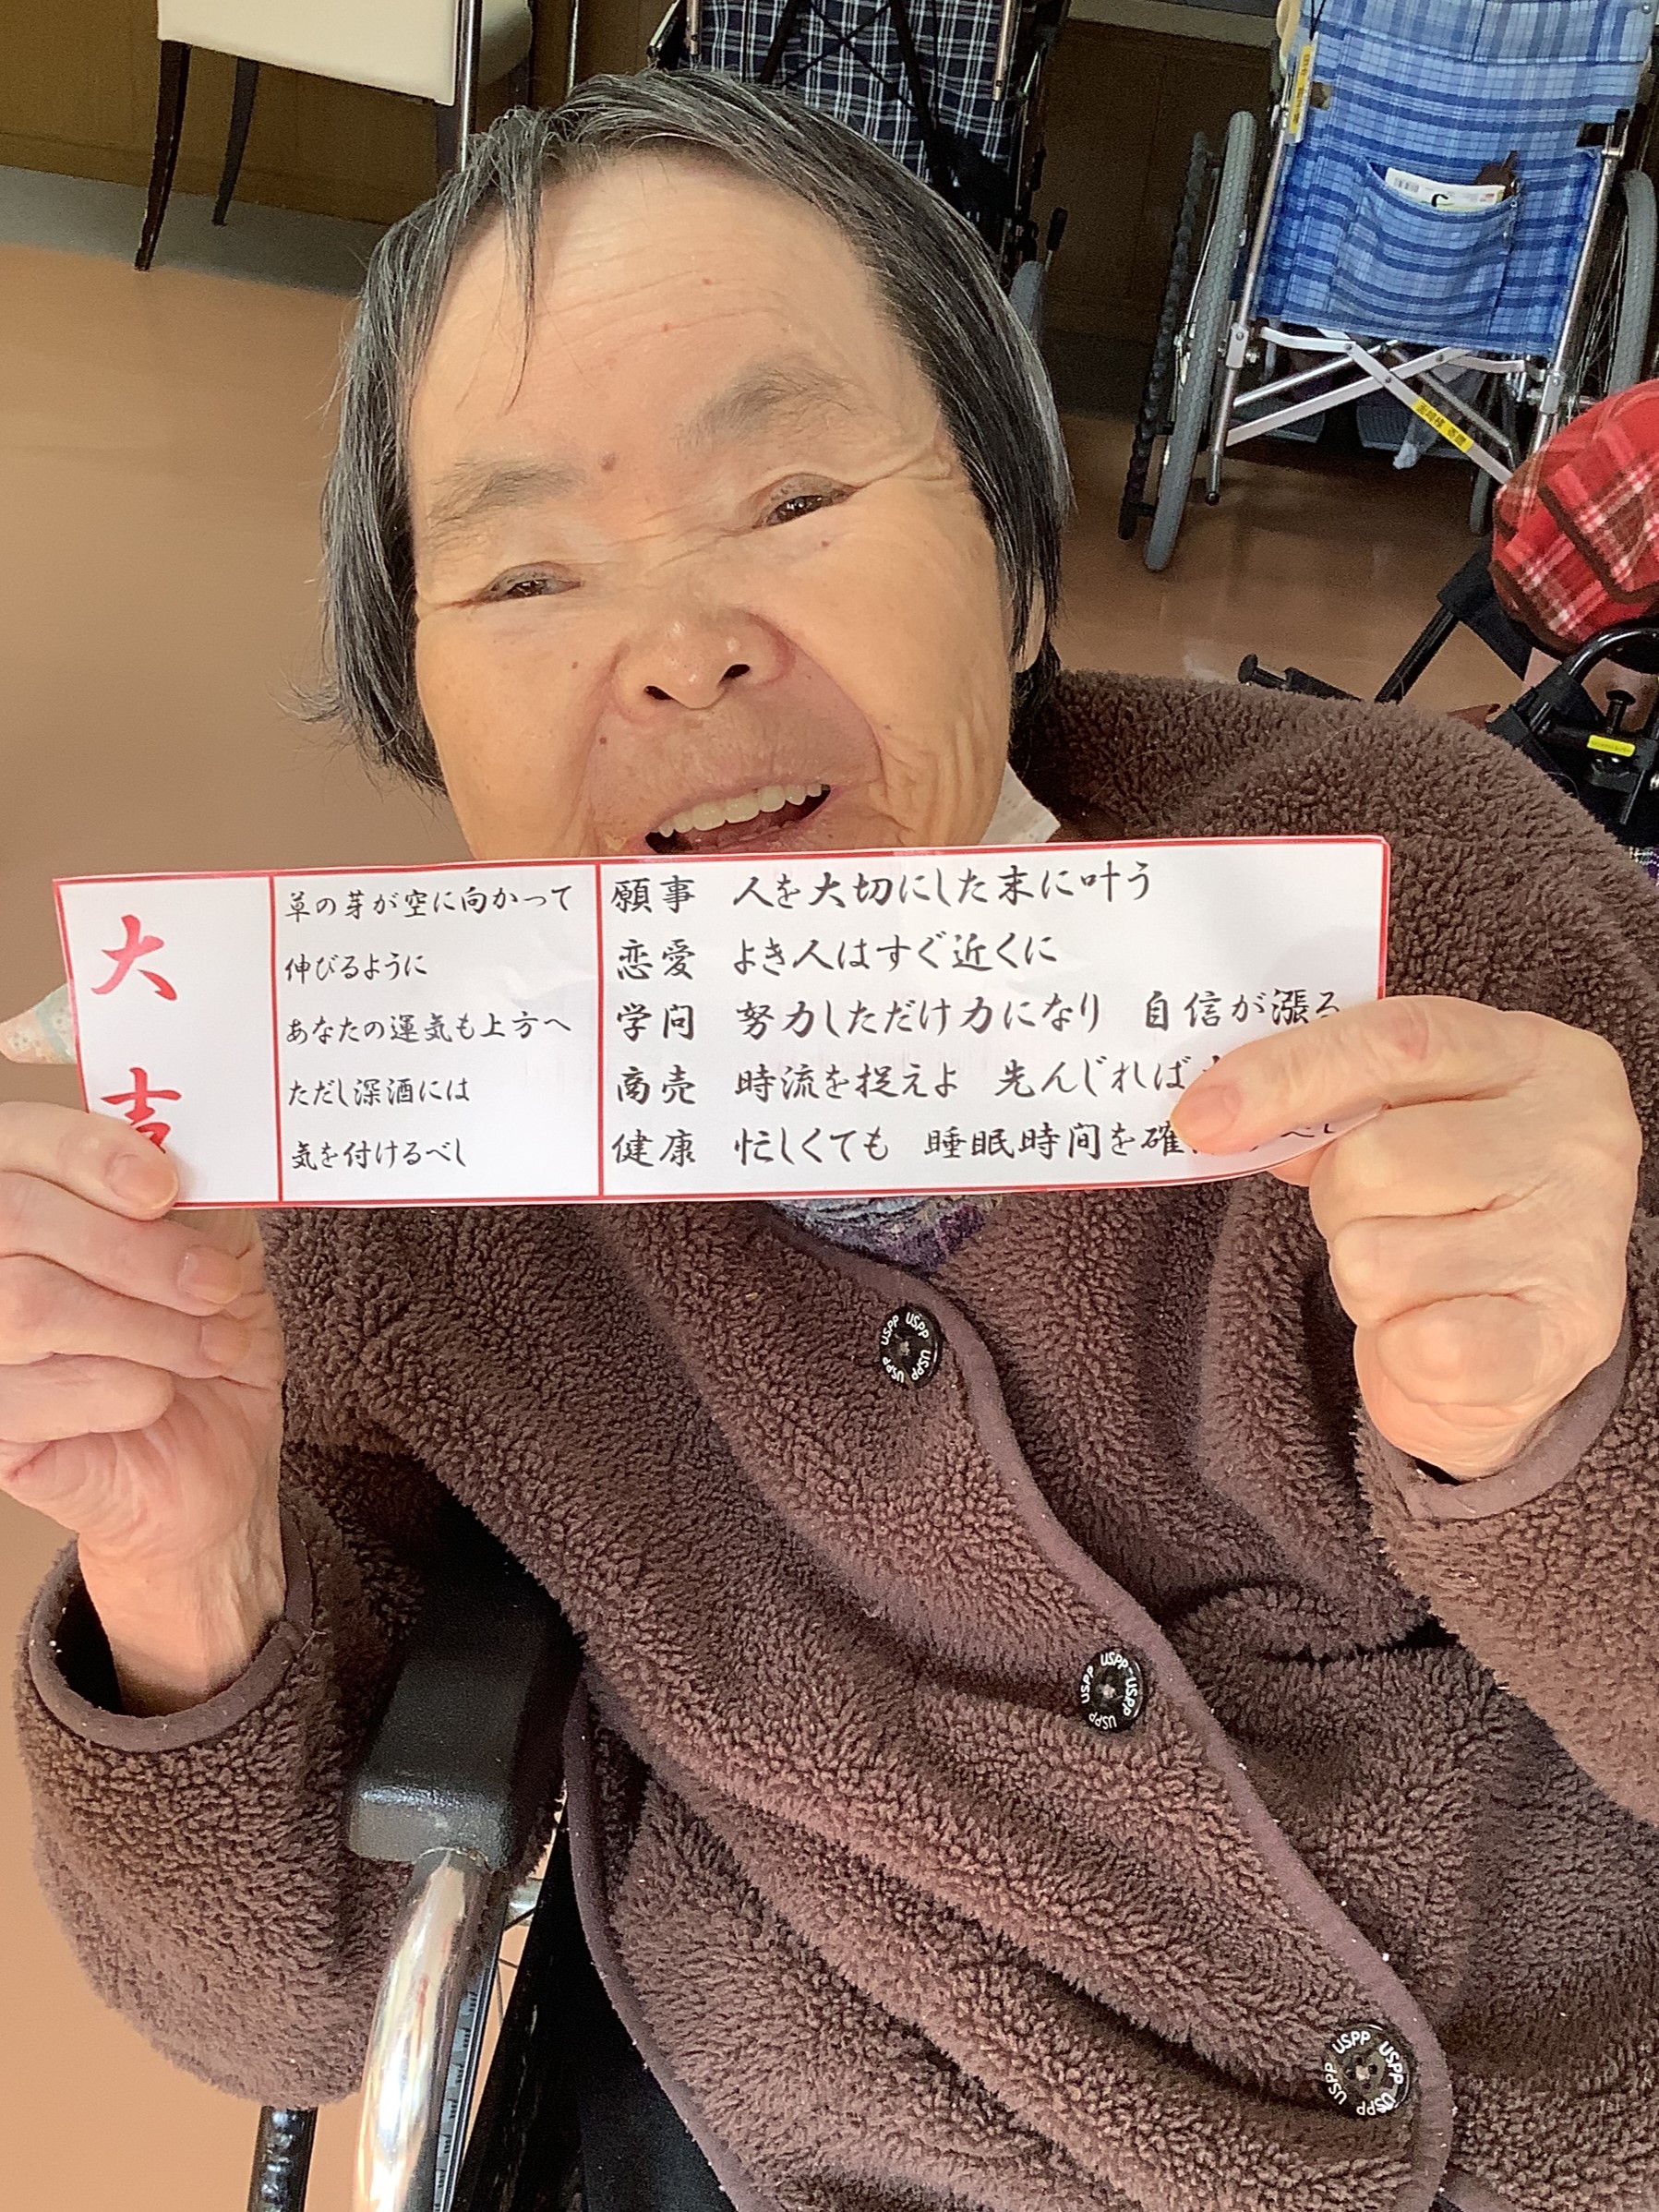 大吉
草の芽が空に向かって
伸びるように
あなたの運気も上方へ
ただし深酒には
気を付けるべし
願事 人を大切にした末に叶う
恋愛 よき人はすぐ近くに
学問 努力しただけ力になり 自信が漲る
商売 時流を捉えよ 先んじれば
健康 忙しくても 睡眠時間を確
べし
USPP USPP USPP USPP
USPP USPP USPP USPP
USPP USPP USPP USPP